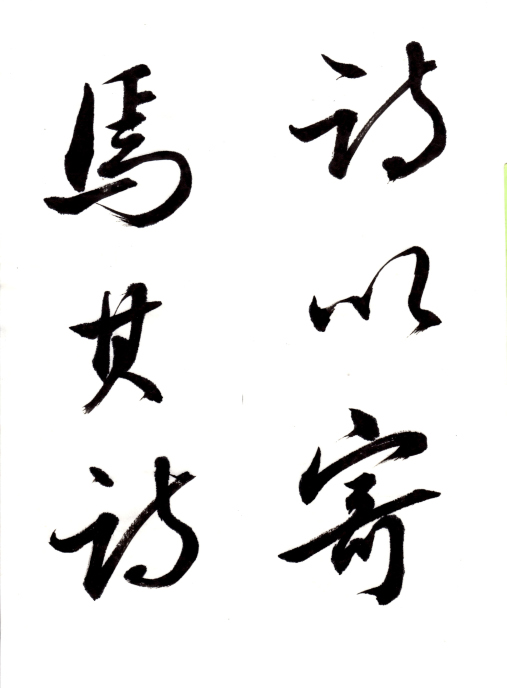 詩以寄
焉其詩